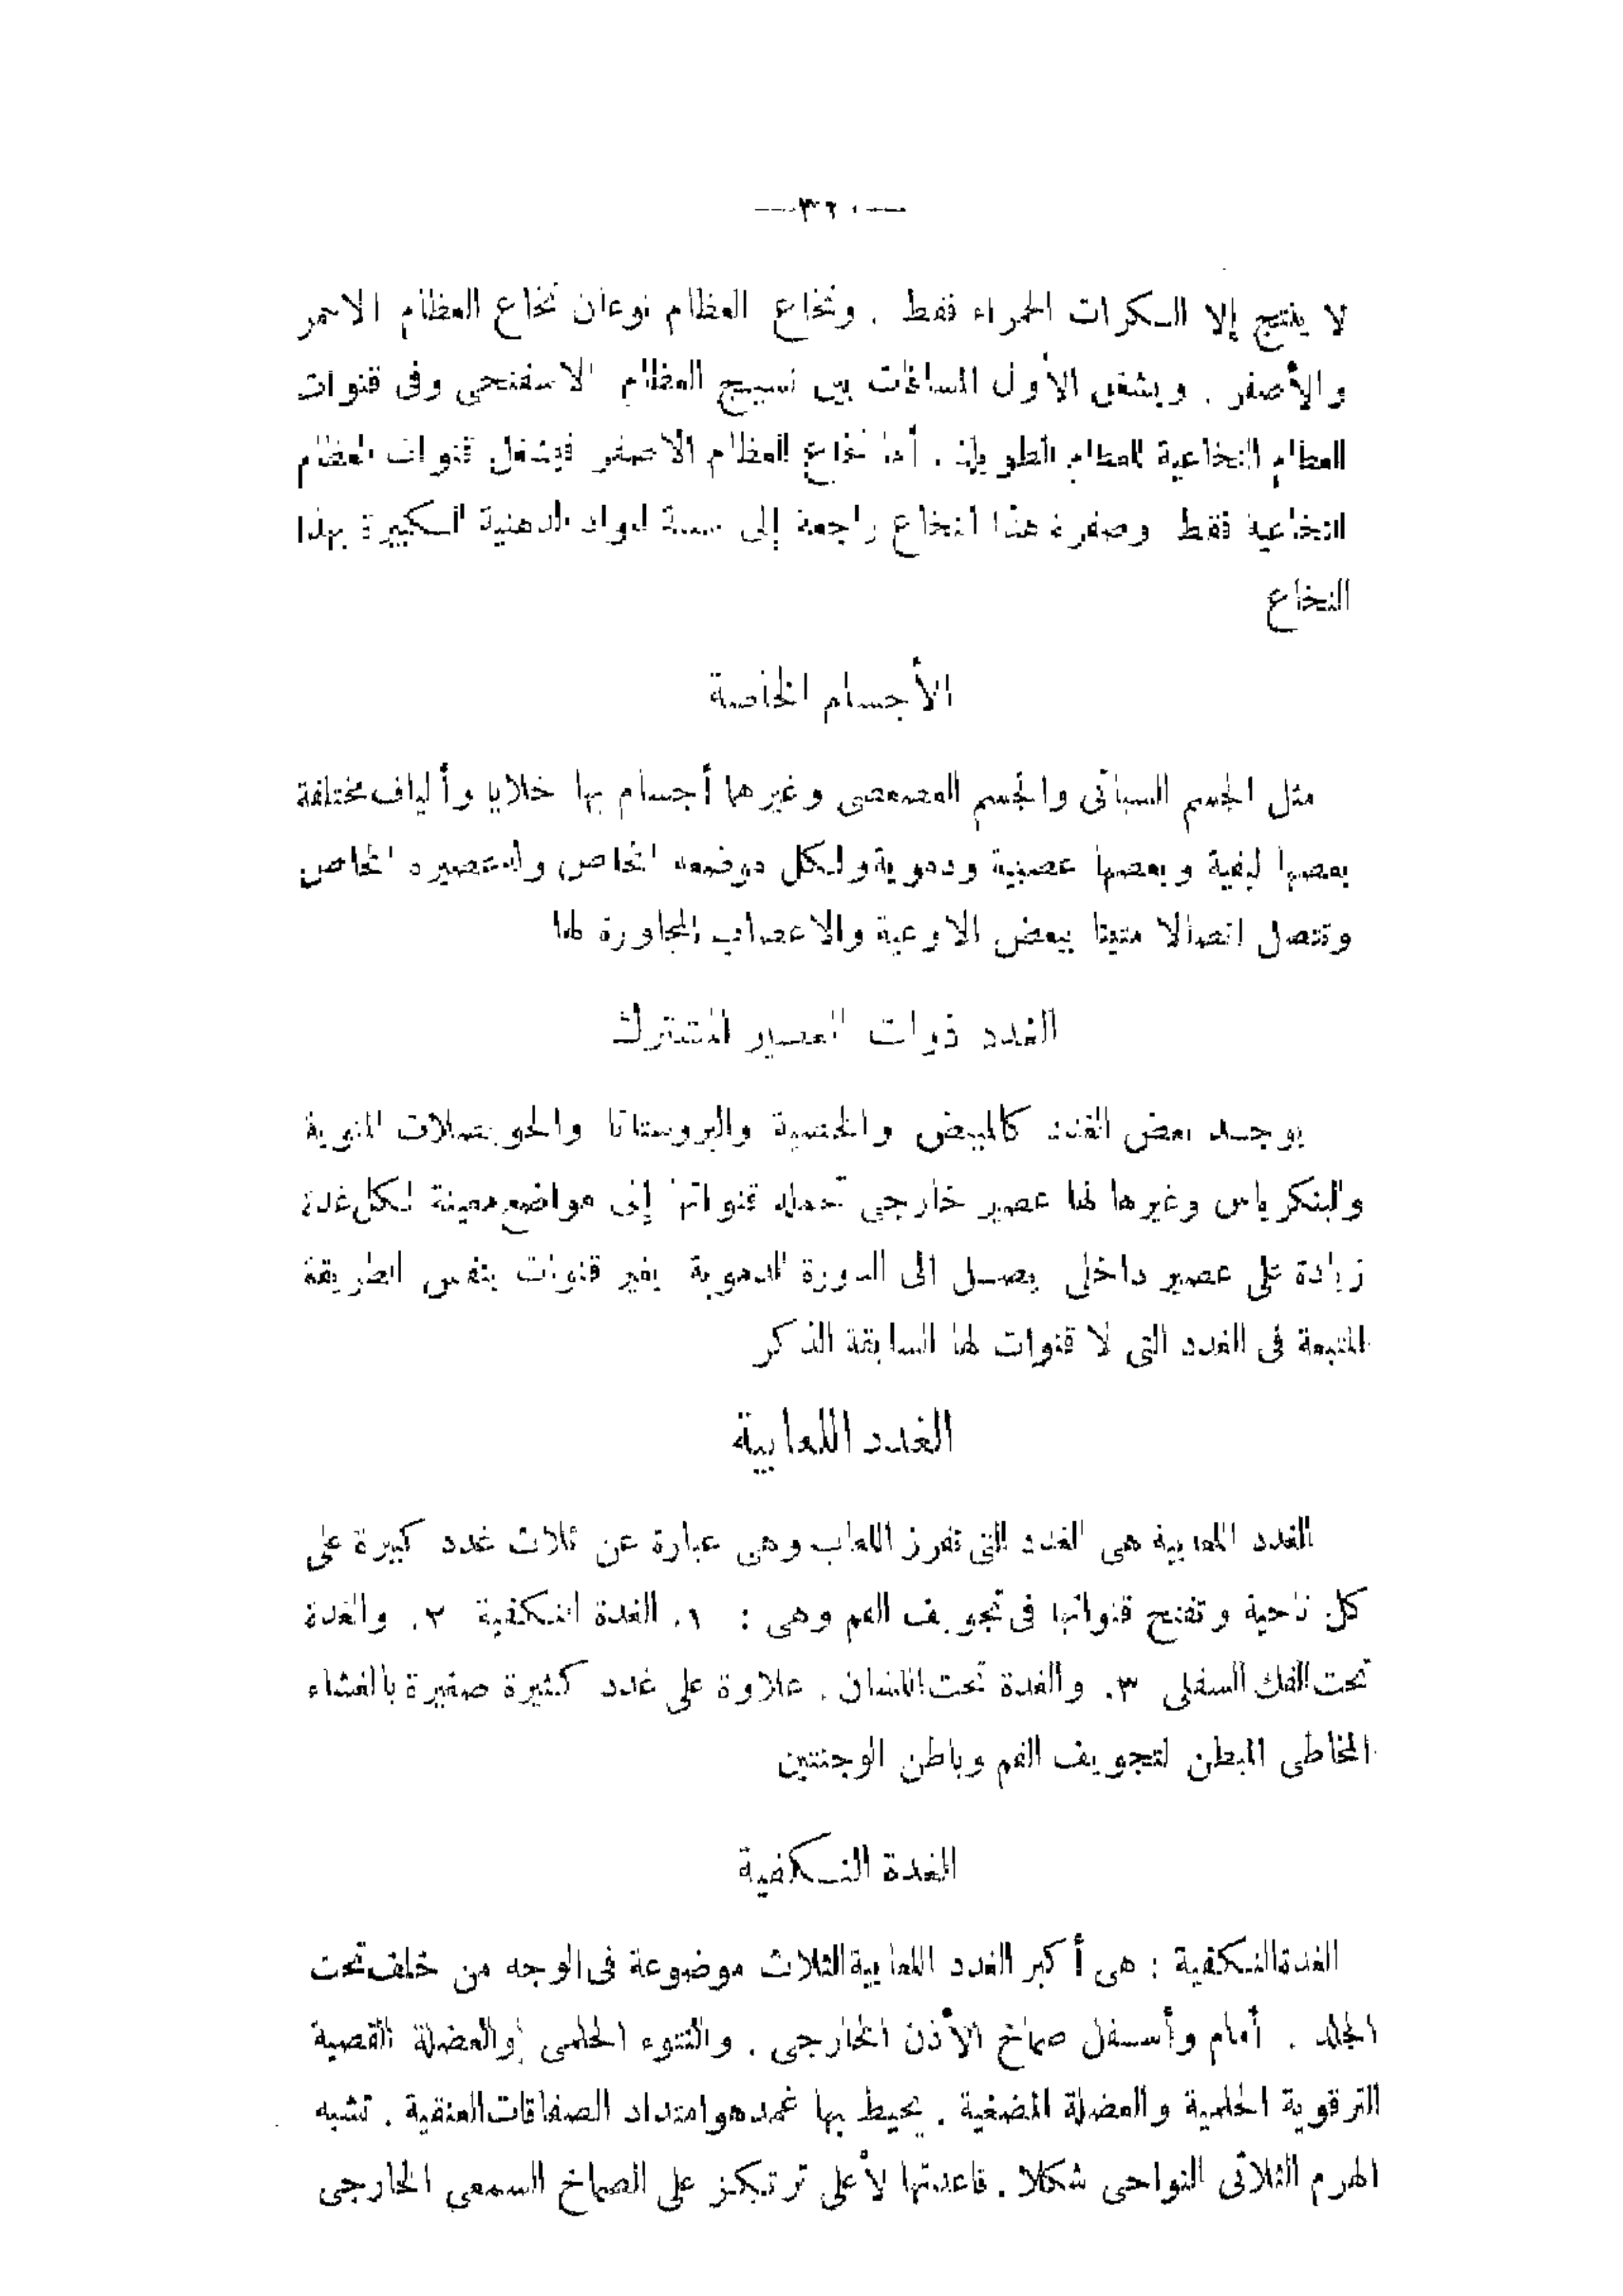 —٣٦٠—
لا ينتج إلا الكرات الحمراء فقط . ونخاع العظام نوعان نخاع العظام الاحمر
والأصفر . ويشغل الأول المسافات بين نسيج العظام الاسفنجى وفى قنوات
العظام النخاعية للعظام الطويلة . أما نخاع العظام الاصفر فيشغل قنوات العظام
النخاعية فقط وصفرة هذا النخاع راجعة إلى نسبة المواد الدهنية الكبيرة بهذا
النخاع
الأجسام الخاصة
مثل الجسم السباتى والجسم العصعصى وغيرهما أجسام بها خلايا وألياف مختلفة
بعضها ليفية وبعضها عصبية ودموية ولكل موضعه الخاص وله عصيره الخاص
وتتصل اتصالا متينا ببعض الاوعية والاعصاب المجاورة لها
الغدد ذوات العصير المشترك
يوجد بعض الغدد كالمبيض والخصية والبروستاتا والحويصلات المنوية
والبنكرياس وغيرها لها عصير خارجى تحمله قنواتها إلى مواضع معينة لكل غدة
زيادة على عصير داخلى يصل الى الدورة الدموية بغير قنوات بنفس الطريقة
المتبعة فى الغدد التى لا قنوات لها السابقة الذكر
الغدد اللعابية
الغدد اللعابية هى الغدد التى تفرز اللعاب وهى عبارة عن ثلاث غدد كبيرة على
كل ناحية وتفتح قنواتها فى تجويف الفم وهى : ١. الغدة النكفية ٢. والغدة
تحت الفك السفلى ٣. والغدة تحت اللسان . علاوة على غدد كثيرة صغيرة بالغشاء
المخاطى المبطن لتجويف الفم وباطن الوجنتين
الغدة النكفية
الغدة النكفية : هى أكبر الغدد اللعابية الثلاث موضوعة فى الوجه من خلف تحت
الجلد . أمام وأسفل صماخ الأذن الخارجى . والنتوء الحلمى والعضلة القصية
الترقوية الحلمية والعضلة المضغية . يحيط بها غمد هو امتداد الصفاقات العنقية . تشبه
الهرم الثلاثى النواحى شكلا . قاعدتها لأعلى ترتكز على الصماخ السمعى الخارجى